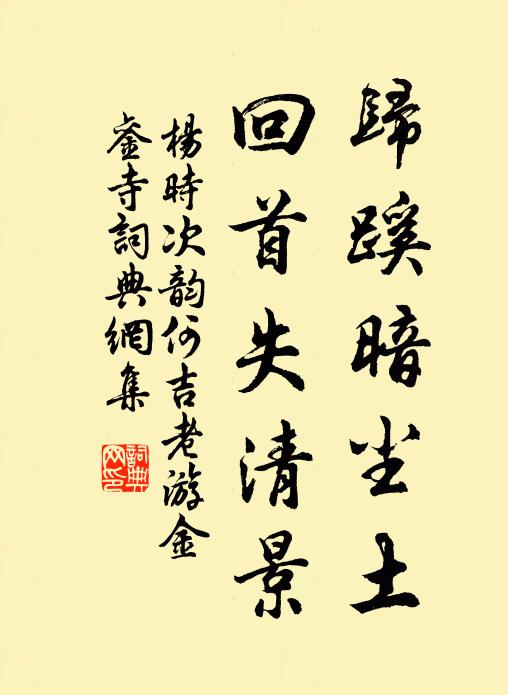 歸蹊暗尘土
回首失清景
楊時次韵何吉老游金
銮寺詞典網集
詞典网印